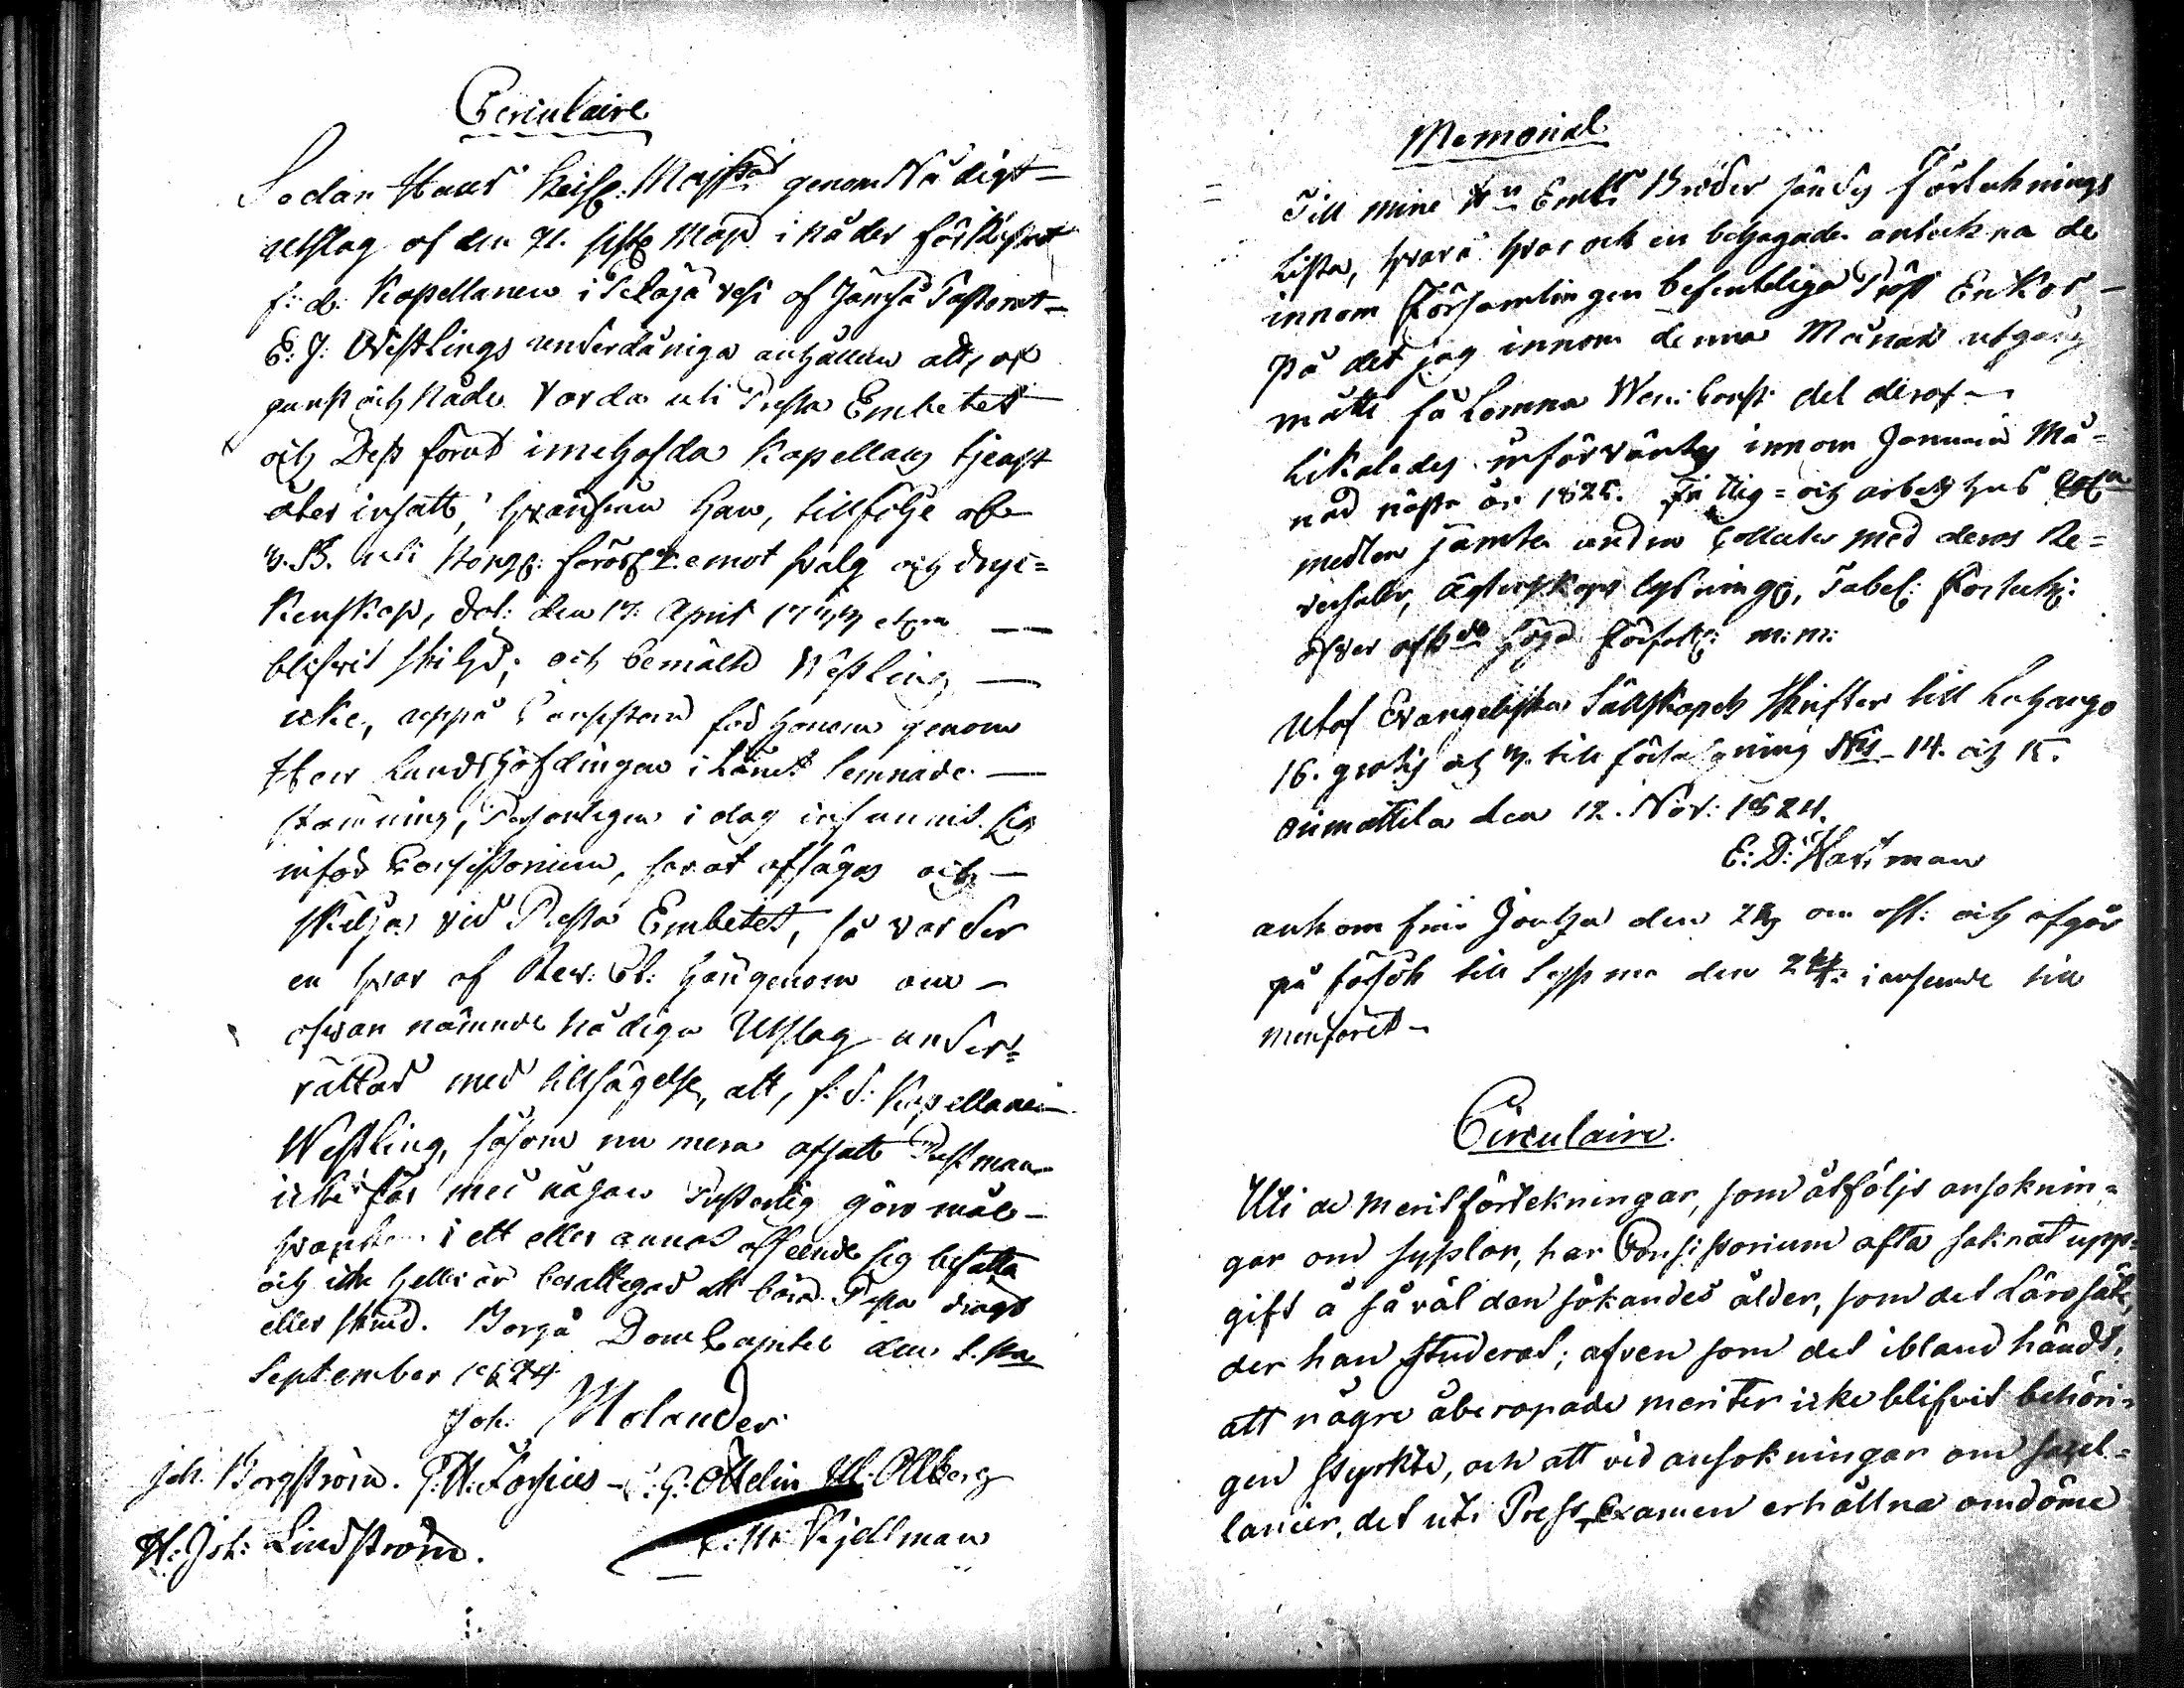 Circulaire
Sedan Hans Keiserl: Majestät genom Nådigt
utslag af den 21. sistl. Maji i nåder förklarat
f: d: Kapellanen i Petäjävesi af Jämsä Pastorat
E: J: Westlings underdåniga anhållan att, af
gunst och Nåde varda uti Presta Embetet
och Dess förut innehafda Kapellans tjenst
åter insatt, hvarifrån han, tillfölje af
K. B. uti Kongl: förordn: emot svalg och dryc=
kenskap, dat: den 17: April 1733
blifvit skiljd; och bemälte Westling
icke, uppå Consistorii föd honom genom
Herr Landshöfdingen i Länet lemnade
stämning, Personligen i dag infunnit sig
inför Consistorium, för at afsägas och
skiljas vid Presta Embetet, så varder
en hvar af Rev: Cl: härigenom om
ofvan nämnde nådiga Utslag under=
rättad med tillsägelse, att, f: d: Kapellanen
Westling, såsom nu mera afsatt Prestman
icke får med någon Presterlig göromål
hvarken i ett eller annat afseende sig befatta
och icke heller är berättigad att bära Presta drägt
eller skrud. Borgå Dom Capitel den 1.sta
September 1824
Joh. Molander
Joh. Borgström. G. H. Forsius C: G: Ottelin M. Ollberg
H: Joh: Lindström. Kjellman
Memorial
Till mine Hrr Embts Bröder sändes Förteknings
Lista, hvarå hvar och en behagade antekna de
innom Församlingen befinteliga Prest Enkor
på det jag innom denna Månads utgång
måtte få Lemna Ven: Consist: del deraf
Likaledes införväntas innom Januarii Må=
nad nästa år 1825. Fattig= och arbetshus
medlen jämte andra Collecter med deras Re=
verseler, Ägtenskaps lysning, Tabel: Förtekn:
öfver höga Författ: m: m:
Utaf Evangeliska Sällskapets Skrifter till Lahango
16. gratis och 7. till försäljning No 14. och 15.
Orimattila den 12. Nov: 1824.
E: D: Hartman
ankom från Joutza den 23 om aft: och afgår
på försök till Leppme den 24. i anseende till
menföret
Circulaire.
Uti de Meritförtekningar, som åtföljt ansöknin=
gar om sysslor, har Consistorium ofta saknat upp=
gift å så väl den sökandes ålder, som det Lärosäte,
der han studerat; äfven som det ibland händt,
att någre åberopade meriter icke blifvit behöri=
gen styrkte, och att vid ansökningar om Capel=
lanier, det uti Prest Examen erhållna omdöme